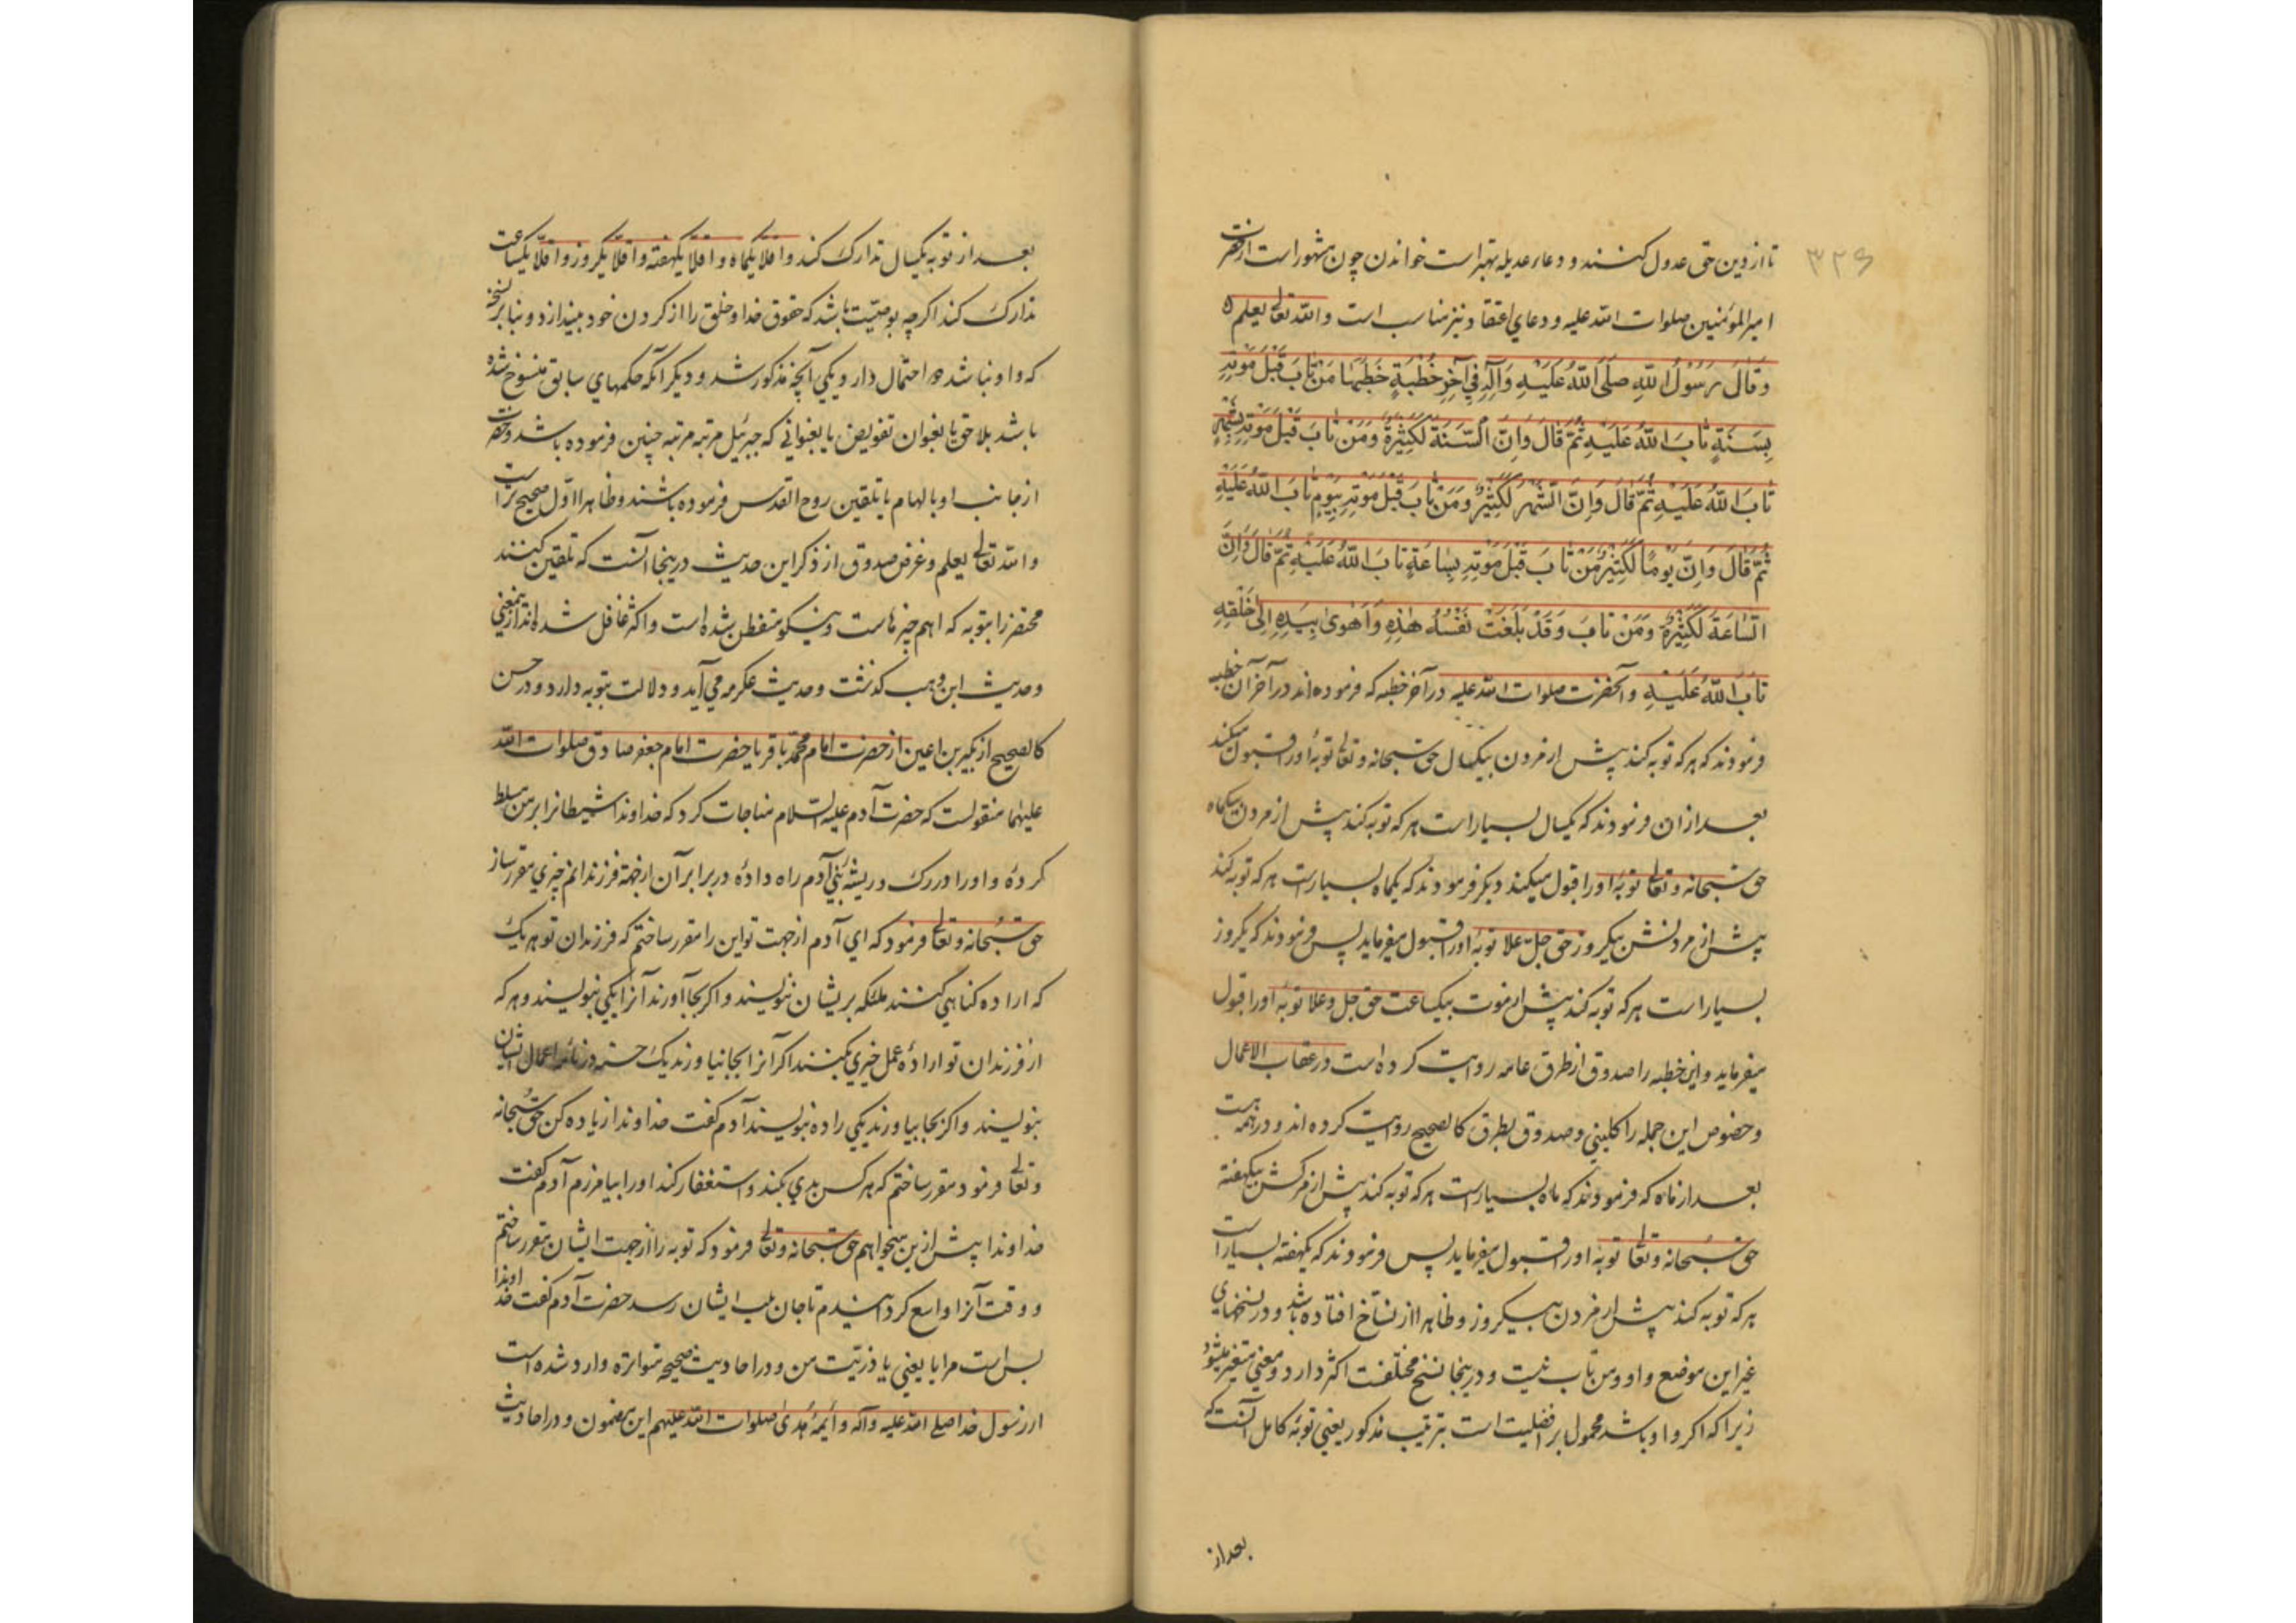 ۳۲۶
تا از دین حق عدول کنند و دعاء عدیله بهتر است خواندن چون مشهور است از حضرت
امیر المؤمنین صلوات الله علیه و دعای اعتقاد نیز مناسب است والله تعالی یعلم
وَقَالَ رَسُوْلُ اللّٰهِ صَلَّى اللّٰهُ عَلَيْهِ وَآلِهِ فِي آخِرِ خُطْبَةٍ خَطَبَهَا مَنْ تَابَ قَبْلَ مَوْتِهِ
بِسَنَةٍ تَابَ اللّٰهُ عَلَيْهِ ثُمَّ قَالَ وَاِنَّ السَّنَةَ لَكَثِيْرَةٌ وَمَنْ تَابَ قَبْلَ مَوْتِهِ بِشَهْرٍ
تَابَ اللّٰهُ عَلَيْهِ ثُمَّ قَالَ وَاِنَّ الشَّهْرَ لَكَثِيْرٌ وَمَنْ تَابَ قَبْلَ مَوْتِهِ بِيَوْمٍ تَابَ اللّٰهُ عَلَيْهِ
ثُمَّ قَالَ وَاِنَّ يَوْمًا لَكَثِيْرٌ مَنْ تَابَ قَبْلَ مَوْتِهِ بِسَاعَةٍ تَابَ اللّٰهُ عَلَيْهِ ثُمَّ قَالَ وَاِنَّ
السَّاعَةَ لَكَثِيْرَةٌ وَمَنْ تَابَ وَقَدْ بَلَغَتْ نَفْسُهُ هٰذِهِ وَاَهْوٰى بِيَدِهِ اِلٰى حَلْقِهِ
تَابَ اللّٰهُ عَلَيْهِ و آنحضرت صلوات الله علیه در آخر خطبه که فرموده اند در آخر آن خطبه
فرمودند که هر که توبه کند پیش از مردن بیکسال حق سبحانه و تعالی توبهٔ او را قبول میکند
بعد از ان فرمودند که یکسال بسیار است هر که توبه کند پیش از مردن بیکماه
حق سبحانه و تعالی توبهٔ او را قبول میکند دیگر فرمودند که یکماه بسیار است هر که توبه کند
پیش از مردنش بیکروز حق جل علا توبهٔ او را قبول میفرماید پس فرمودند که یکروز
بسیار است هر که توبه کند پیش از موت بیکساعت حق جل و علا توبهٔ او را قبول
میفرماید و این خطبه را صدوق از طرق عامه روایت کرده است در عقاب الاعمال
و خصوص این جمله را کلینی و صدوق بطرق کالصحیح روایت کرده اند و در همه هست
بعد از ماه که فرمودند که ماه بسیار است هر که توبه کند پیش از مرگش بیکهفته
حق سبحانه و تعالی توبهٔ او را قبول میفرماید پس فرمودند که یکهفته بسیار است
هر که توبه کند پیش از مردن بیکروز و ظاهرا از نساخ افتاده باشد و در نسخهای
غیر این موضع واو و من تاب نیست و درینجا نسخ مختلفست اکثر دارد و معنی متغیر میشود
زیرا که اگر واو باشد محمول بر افضلیت است بترتیب مذکور یعنی توبهٔ کامل آنست که
بعد از
بعد از توبه یکسال تدارک کند و اقلا یکماه و اقلا یکهفته و اقلا یکروز و اقلا یکساعت
تدارک کند اگرچه بوصیت باشد که حقوق خدا و خلق را از گردن خود بیندازد و بنا بر نسخهٔ
که واو نباشد دو احتمال دارد یکی آنچه مذکور شد و دیگر آنکه حکمهای سابق منسوخ شده
باشد بلاحق یا بعنوان تفویض یا بعنوانی که جبرئیل مرتبه مرتبه چنین فرموده باشد و حضرت
از جانب او بالهام یا تلقین روح القدس فرموده باشند و ظاهرا اول صحیح تر است
والله تعالی یعلم و غرض صدوق از ذکر این حدیث درینجا آنست که تلقین کنند
محتضر را بتوبه که اهم چیزهاست و نیکو متفطن شده است و اکثر غافل شده اند ازین معنی
و حدیث ابن وهب گذشت و حدیث عکرمه می آید و دلالت بتوبه دارد و در حسن
کالصحیح از بکیر بن اعین از حضرت امام محمد باقر یا حضرت امام جعفر صادق صلوات الله
علیهما منقولست که حضرت آدم علیه السلام مناجات کرد که خداوندا شیطانرا بر من مسلط
کردهٔ و او را در رگ و ریشهٔ بنی آدم راه دادهٔ در برابر آن از جهة فرزندانم چیزی مقرر ساز
حق سبحانه و تعالی فرمود که ای آدم از جهت تو این را مقرر ساختم که فرزندان تو هر یک
که اراده گناهی کنند ملئکه بریشان ننویسند و اگر بجا آورند آنرا یکی بنویسند و هر که
از فرزندان تو ارادهٔ عمل خیری بکنند اگر آنرا بجا نیاورند یک حسنه در نامهٔ اعمال ایشان
بنویسند و اگر بجا بیاورند یکی را ده بنویسند آدم گفت خداوندا زیاده کن حق سبحانه
و تعالی فرمود مقرر ساختم که هر کس بدی بکند و استغفار کند او را بیامرزم آدم گفت
خداوندا پیش ازین میخواهم حق سبحانه و تعالی فرمود که توبه را از جهت ایشان مقرر ساختم
و وقت آنرا واسع گردانیدم تا جان بلب ایشان رسد حضرت آدم گفت خداوندا
بس است مرا یا یعنی با ذریت من و در احادیث صحیحه متواتره وارد شده است
از رسول خدا صلی الله علیه وآله و ایمهٔ هدی صلوات الله علیهم این مضمون و در احادیث